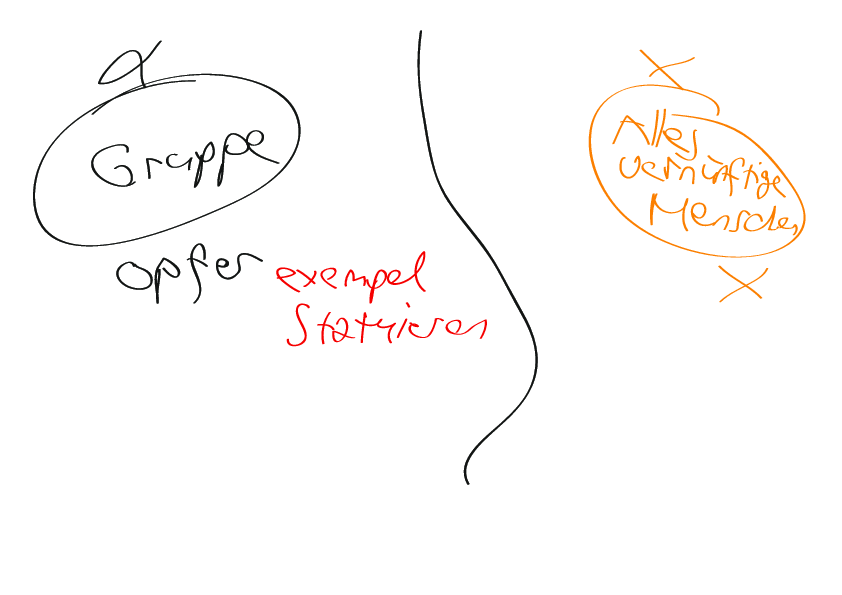 α
Gruppe
opfer
exempel
Statuieren
X
Alles
vernünftige
Menschen
X